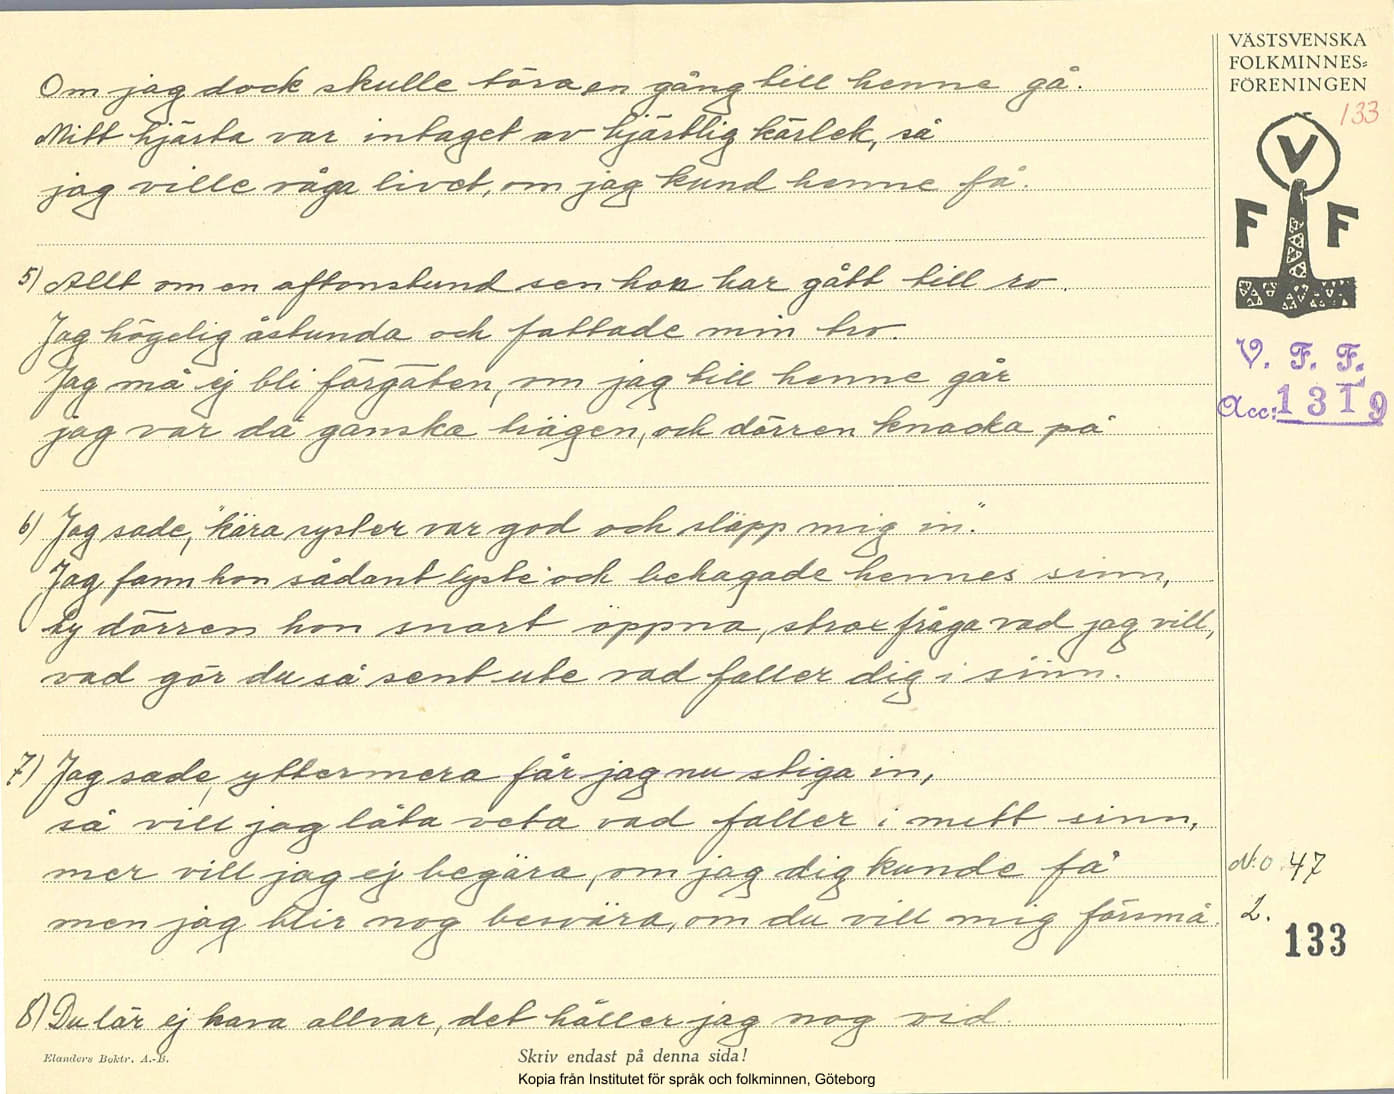 VÄSTSVENSKA
FOLKMINNES=
FÖRENINGEN
133
V
F F
V. F. F.
Acc: 1319
Om jag dock skulle töra en gång till henne gå.
Mitt hjärta var intaget av hjärtlig kärlek, så
jag ville våga livet, om jag kund henne få.
5) Allt om en aftonstund sen hon har gått till ro.
Jag högelig åstunda och fattade min tro.
Jag må ej bli förgäten, om jag till henne går
jag var då ganska trägen, och dörren knacka på
6) Jag sade, "kära syster var god och släpp mig in".
Jag fann hon sådant lyste och behagade hennes sinn,
ty dörren hon snart öppna, strax fråga vad jag vill,
vad gör du så sent ute vad faller dig i sinn.
7) Jag sade, yttermera får jag nu stiga in,
så vill jag låta veta vad faller i mitt sinn,
mer vill jag ej begära, om jag dig kunde få
men jag blir nog besvära, om du vill mig försmå.
8) Du lär ej hava allvar, det håller jag nog vid.
N:o 47
2.
133
Elanders Boktr. A.-B.
Skriv endast på denna sida!
Kopia från Institutet för språk och folkminnen, Göteborg